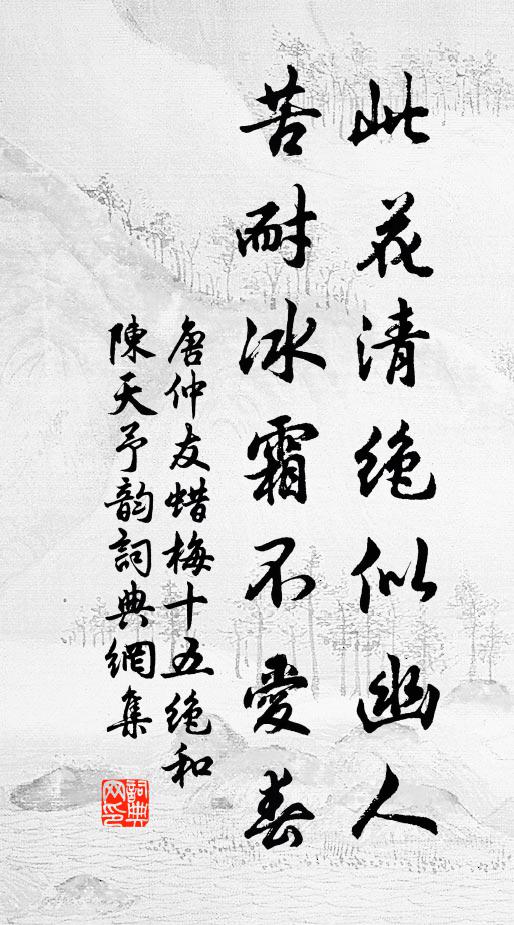 此花清绝似幽人
苦耐冰霜不愛春
唐仲友蜡梅十五绝和
陳天予韵詞典網集
詞典网印